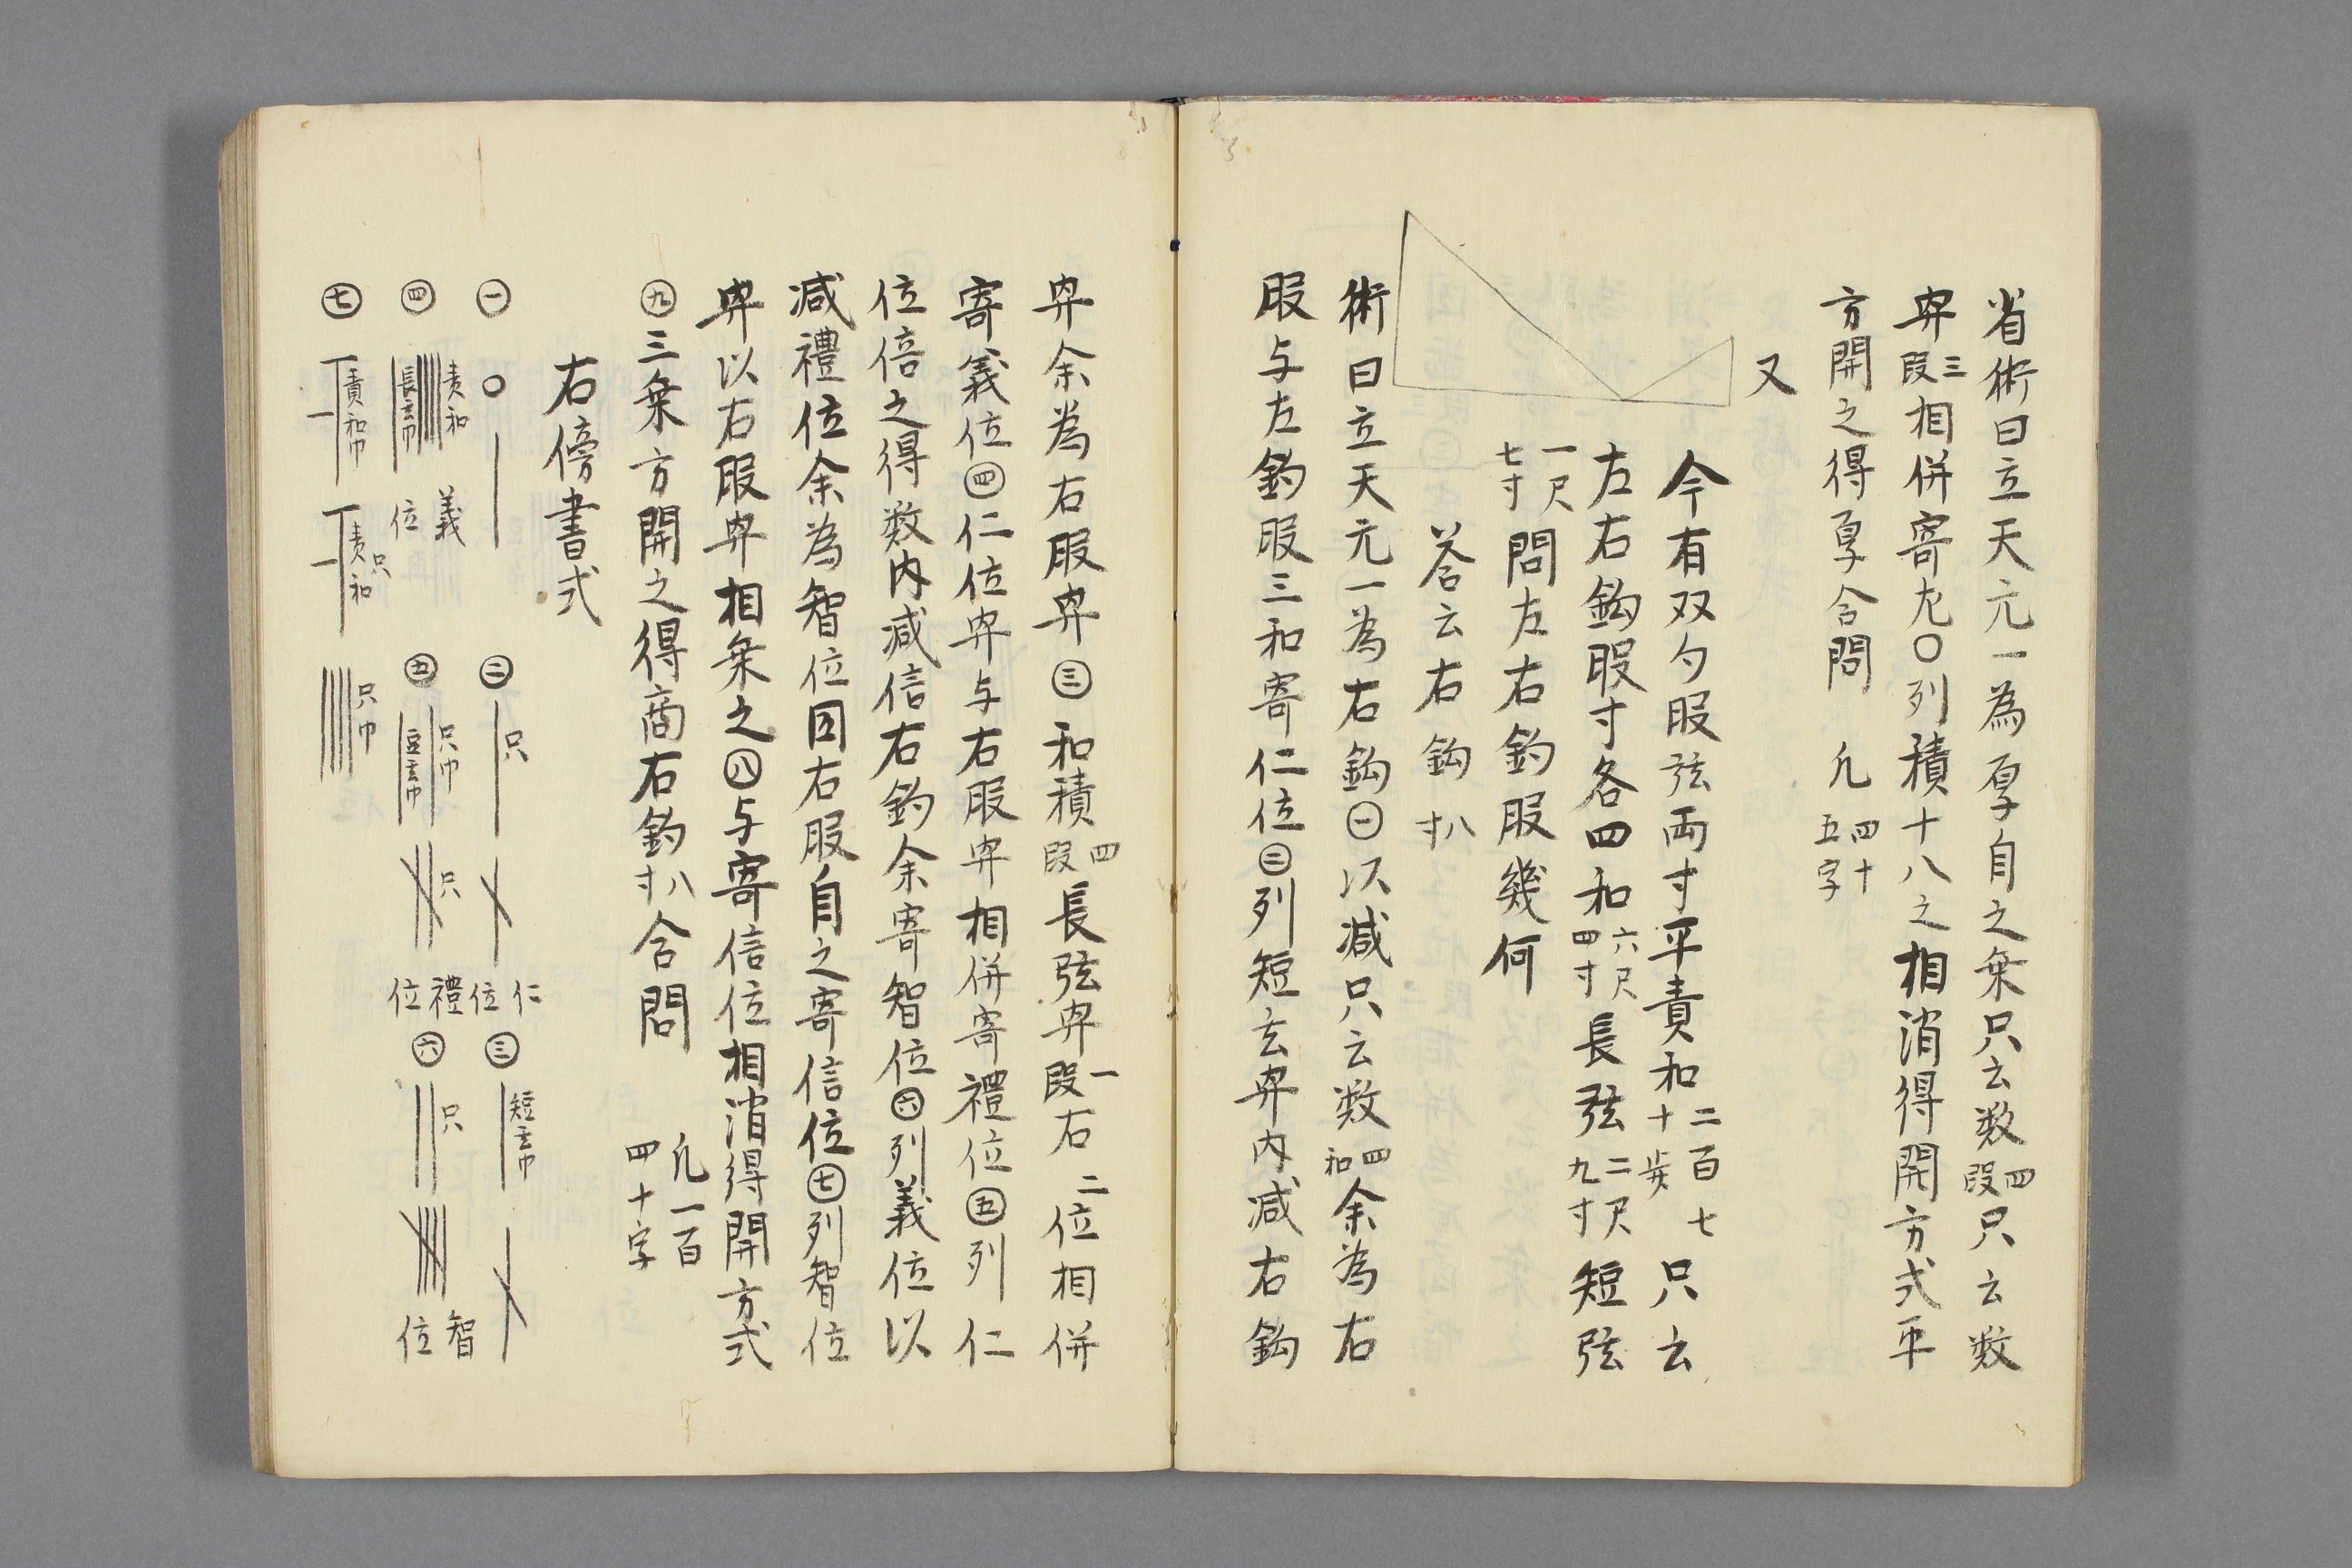 省術曰立天元一為厚自之乗只云数四段只云数
巾三段相併寄左〇列積十八之相消得開方式平
方開之得厚合問 凡四十五字
又
今有双勾股弦両寸平責和二百七十歩只云
左右鈎股寸各四和六尺四寸長弦二尺九寸短弦
一尺七寸問左右鈎股幾何
答云右鈎八寸
術曰立天元一為右鈎㊀以減只云数四和余為右
股与左鈎股三和寄仁位㊁列短玄巾内減右鈎
巾余為右股巾㊂和積四段長弦巾一段右二位相併
寄義位㊃仁位巾与右股巾相併寄禮位㊄列仁
位倍之得数内減信右鈎余寄智位㊅列義位以
減禮位余為智位因右股自之寄信位㊆列智位
巾以右股巾相乗之㊇与寄信位相消得開方式
㊈三乗方開之得商右鈎八寸合問 凡一百四十字
右傍書式
㊀ 〇 ㊁ 只 仁位 ㊂ 短玄巾
㊃ 責和 長玄巾 義位 ㊄ 只巾 短玄巾 只 禮位 ㊅ 只 智位
㊆ 責和巾 責和只 只巾